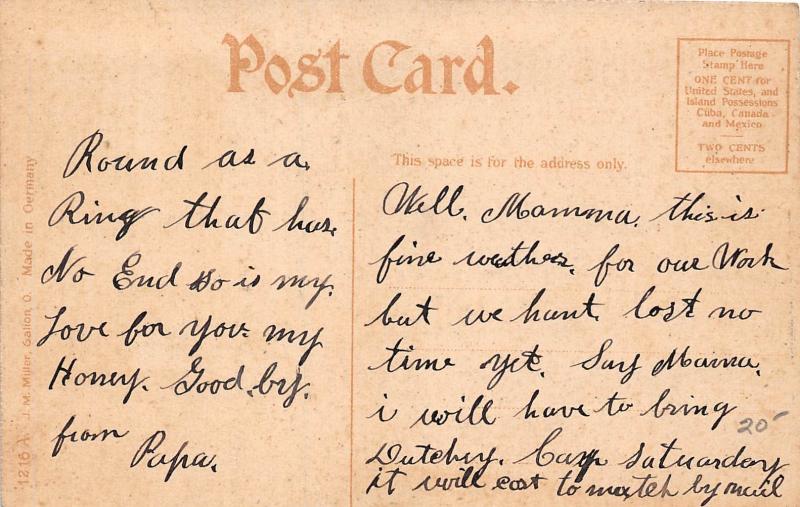 Post Card.
Place Postage
Stamp Here
ONE CENT for
United States, and
Island Possessions
Cuba, Canada
and Mexico
TWO CENTS
elsewhere
This space is for the address only.
1216 A J. M. Miller, Galion, O. Made in Germany
Round as a
Ring that has.
No End so is my.
Love for you my
Honey. Good by.
from
Papa.
Well. Mamma. this is
fine weather. for our Work
but we hant. lost no
time yet. Say Mama.
i will have to bring
Dutchy. Saturday
it will cost to by mail
20